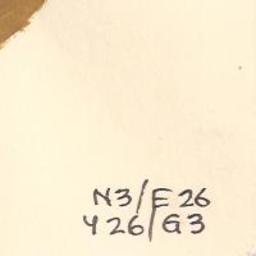 N3/E26
Y26/G3